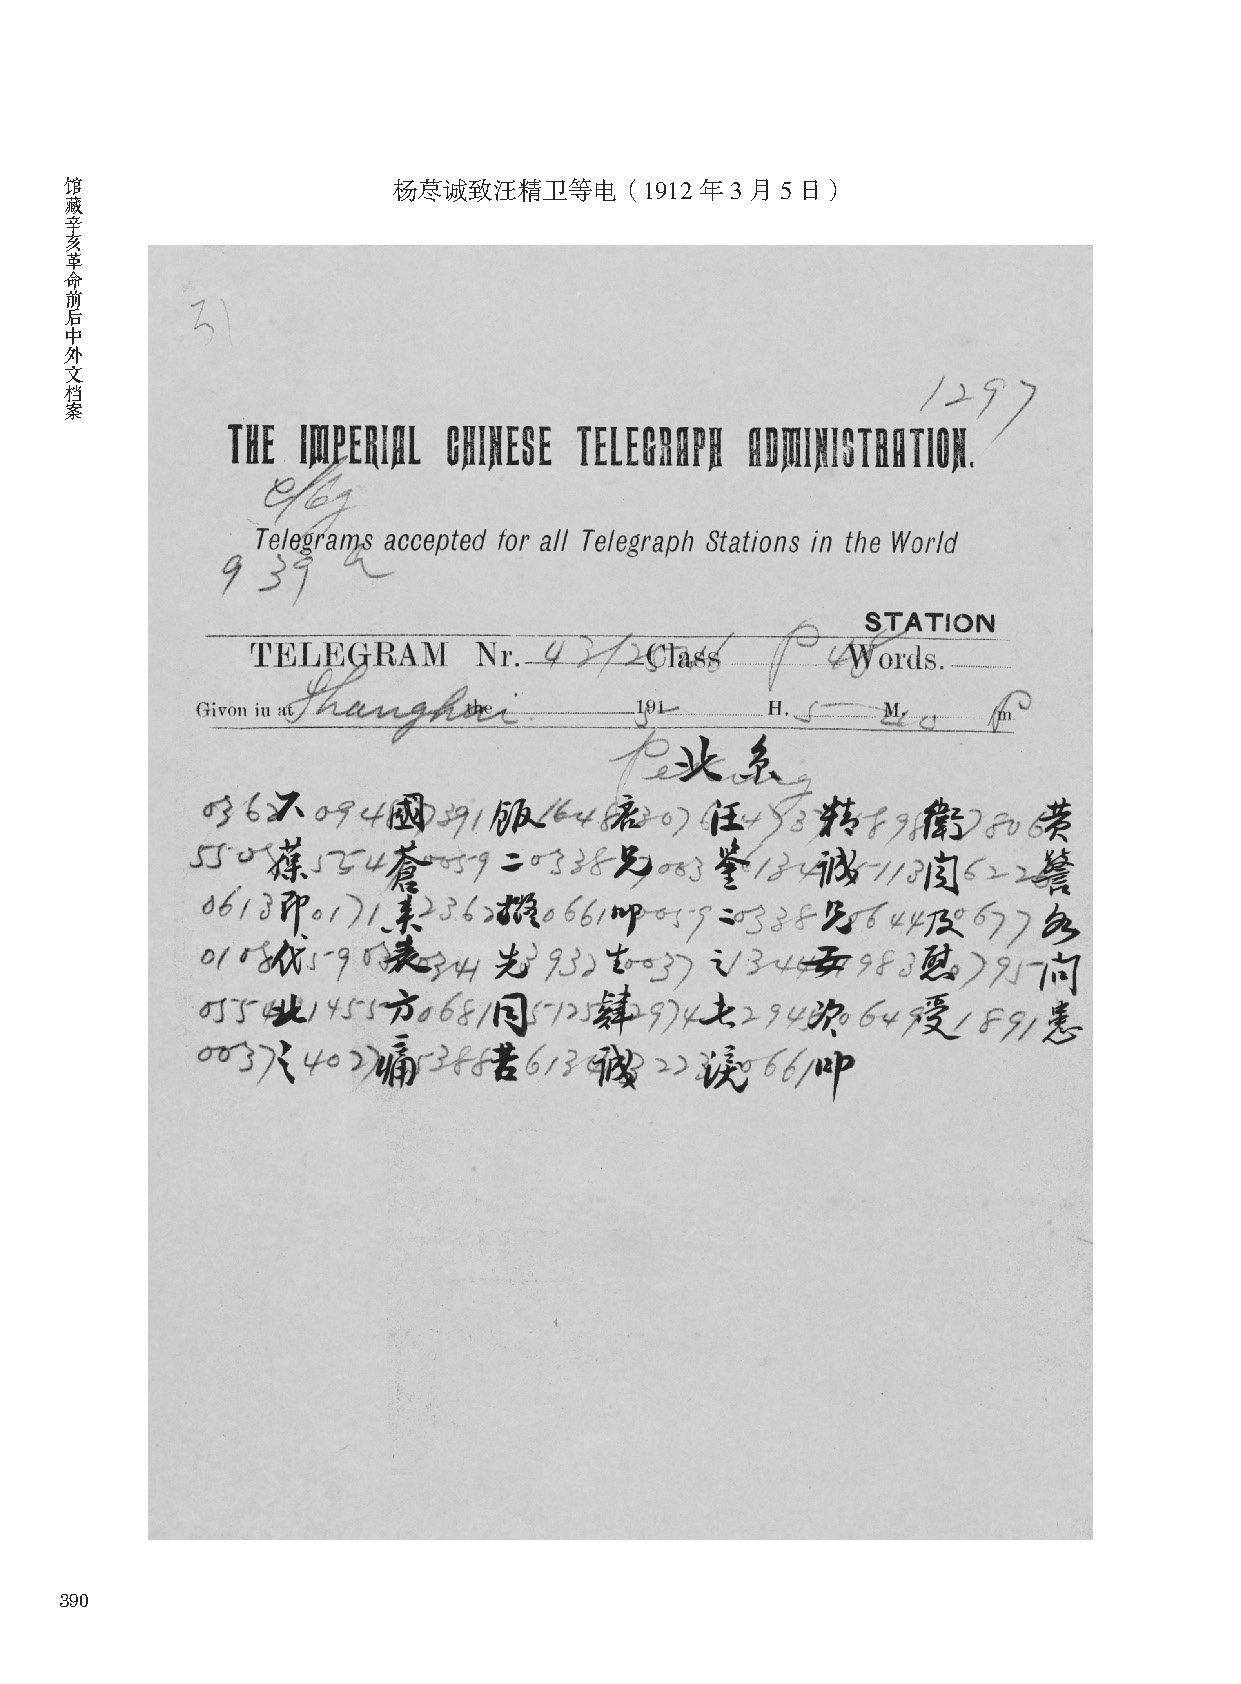 馆藏辛亥革命前后中外文档案
杨荩诚致汪精卫等电（1912 年 3 月 5 日）
31
1297
THE IMPERIAL CHINESE TELEGRAPH ADMINISTRATION.
Telegrams accepted for all Telegraph Stations in the World
939 a
STATION
TELEGRAM Nr. 4312 Class P 48 Words.
Givon iu at Shanghai the 5 191 H. 5 M. 40 Pm
Peking 北京
0362 六 0948 國 7391 飯 1648 店 3076 汪 4737 精 5898 衛 7806 黄
5505 葆 5554 蒼 0059 二 0338 兄 7003 鉴 6134 誠 5113 闻 6226 警
0613 即 0171 來 2362 擬 0661 叩 0059 二 0338 兄 0644 及 0677 各
0108 代 5903 表 0341 先 3932 生 0037 之 1344 安 1983 慰 0795 问
0554 北 1455 方 0681 同 5125 肆 2974 七 2945 次 0649 受 1891 惠
0037 之 4027 痛 5388 苦 6134 诚 3223 淚 0661 叩
390